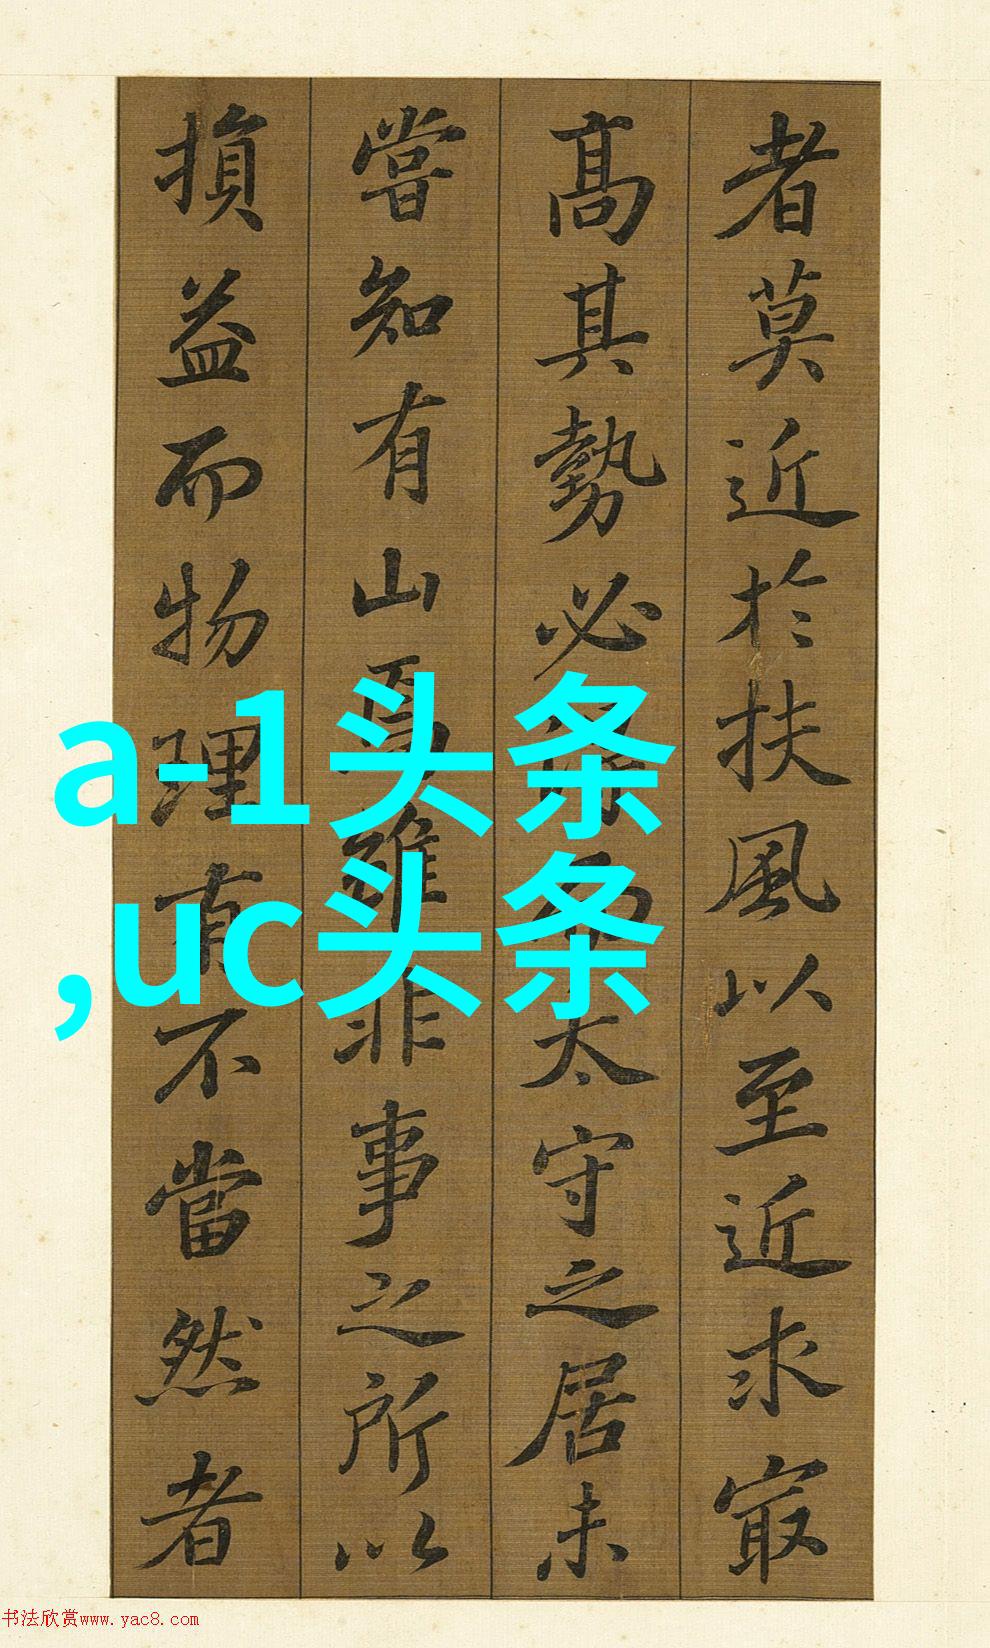 者莫近於扶風以至近求冣
髙其勢必太守之居未
嘗知有山焉雖非事之所以
損益而物理有不當然者
a-1头条
,uc头条
书法欣赏www.yac8.com